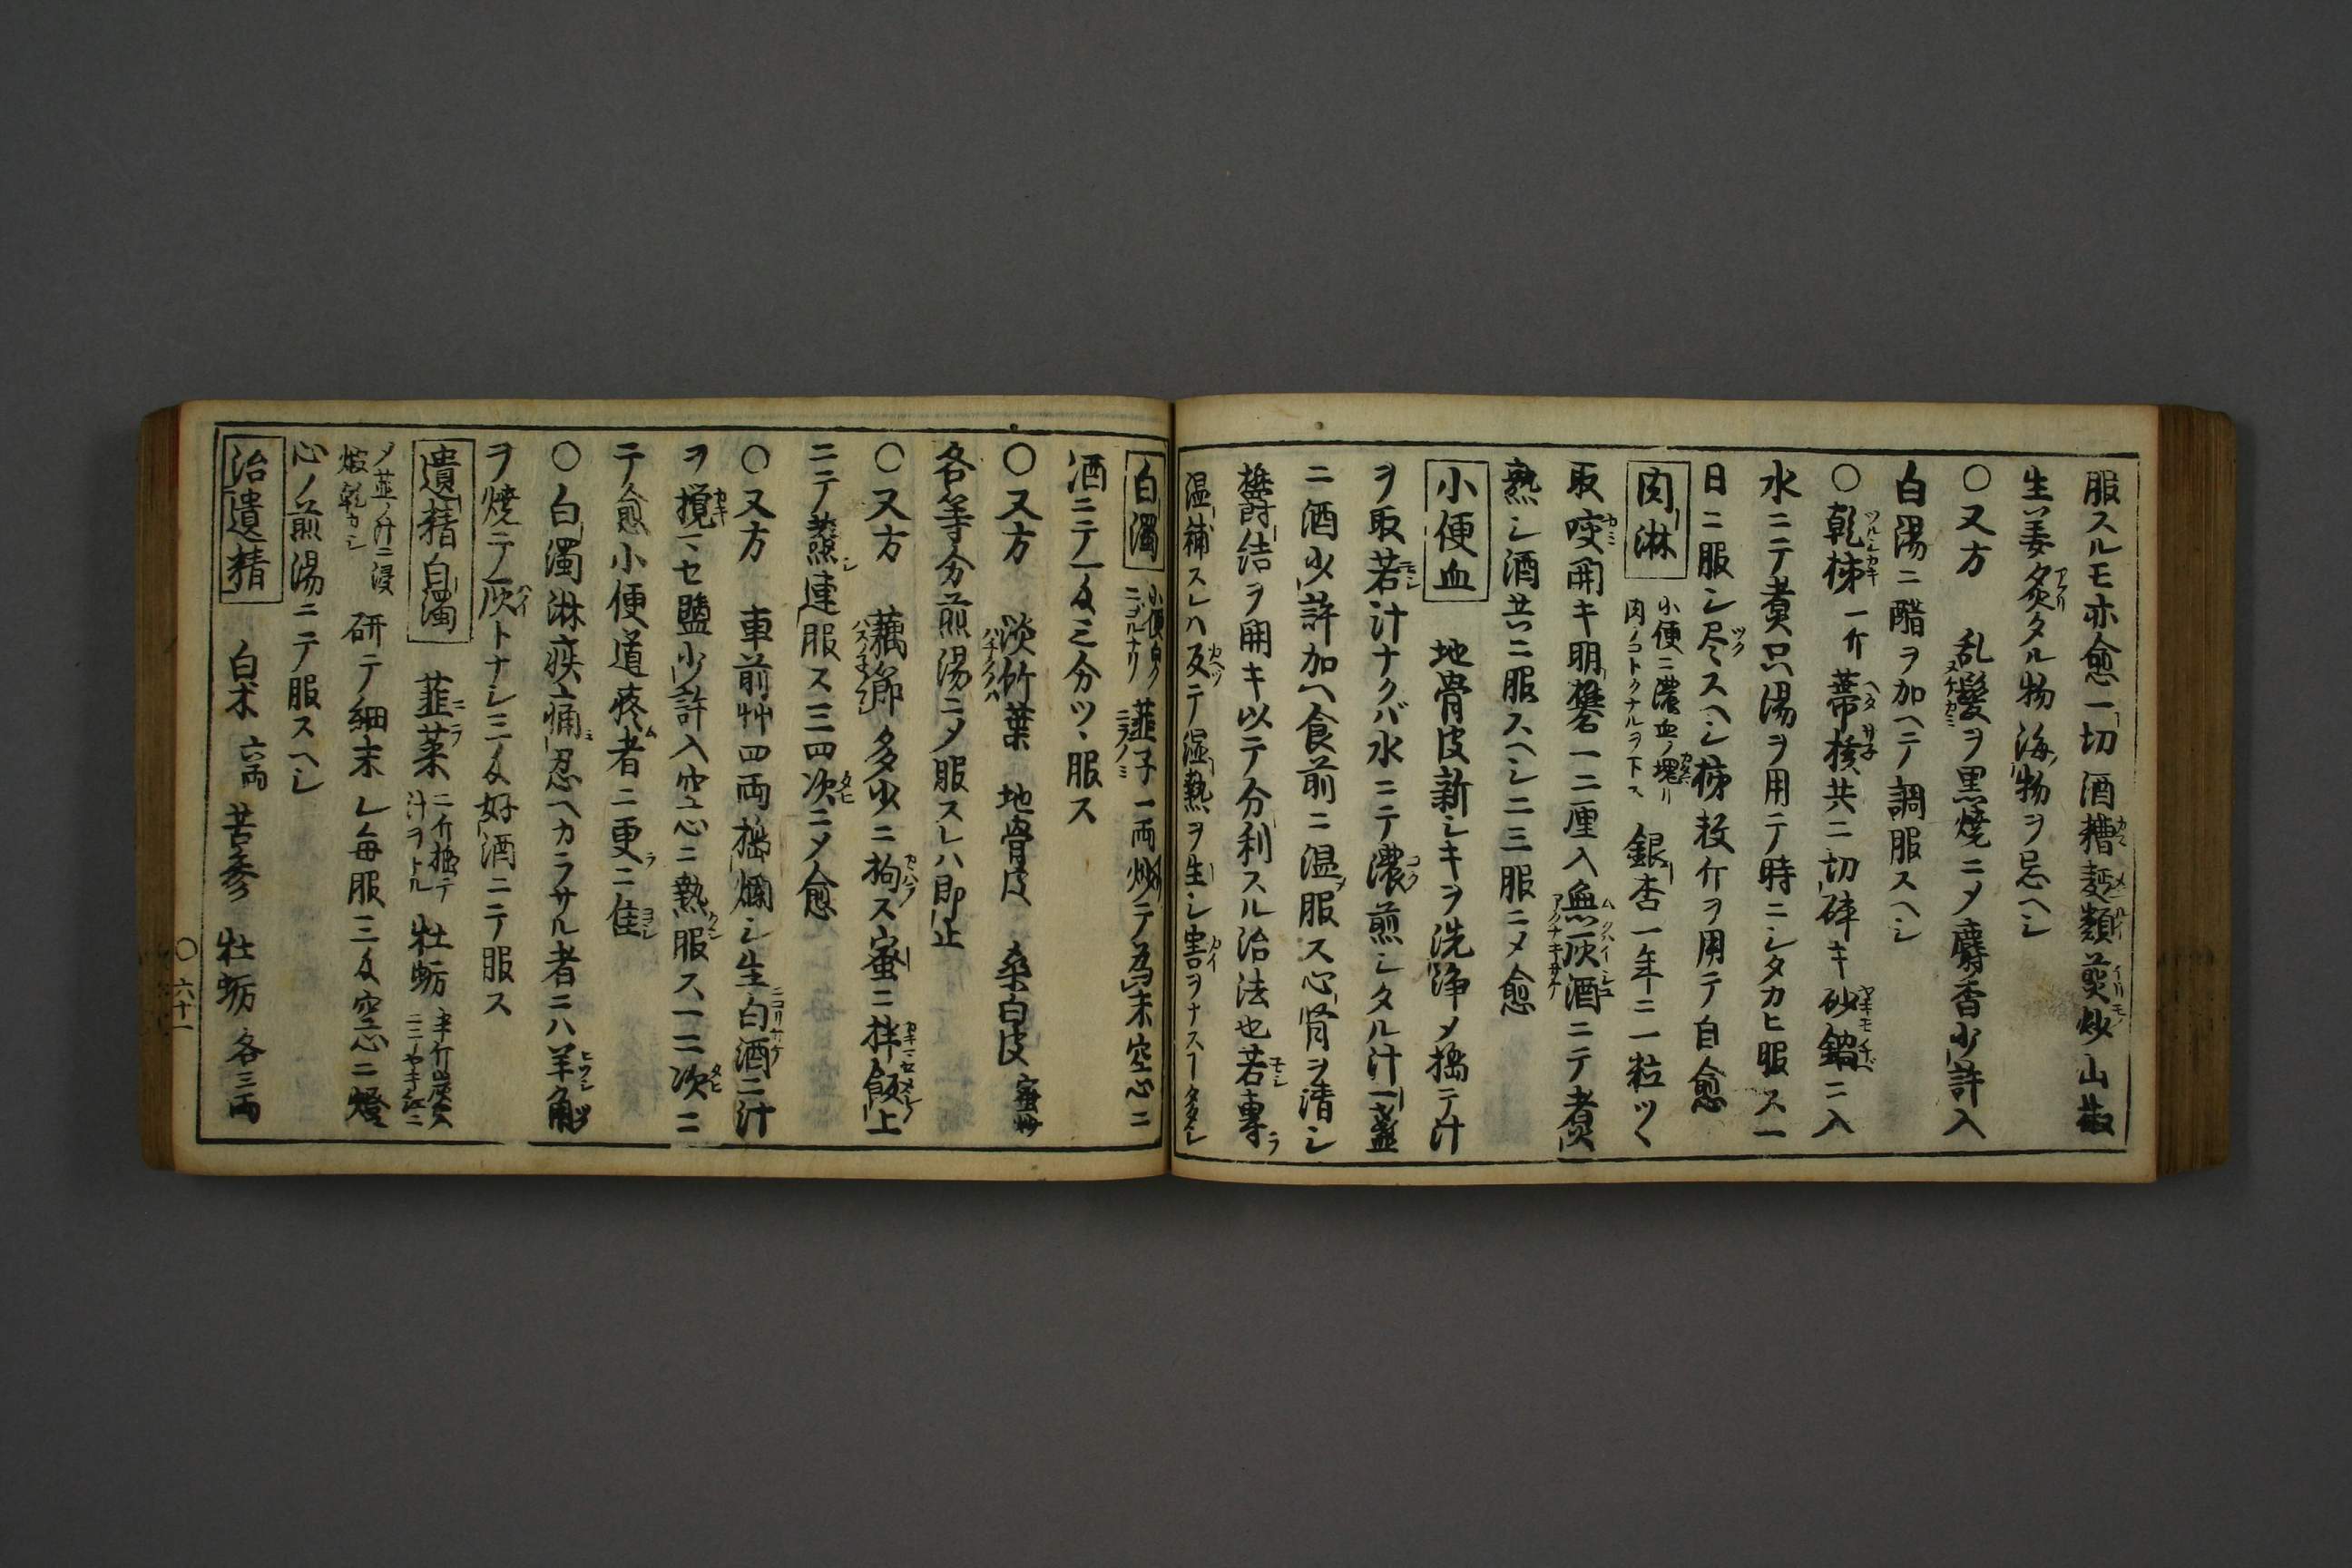 服スルモ亦愈一切酒糟麺類煎炒山椒
生姜炙タル物海物ヲ忌ヘシ
○又方 乱髪ヲ黒焼ニメ麝香少許入
白湯ニ醋ヲ加ヘテ調服スヘシ
○乾柹一斤蒂核共ニ切砕キ砂鍋ニ入
水ニテ煮只湯ヲ用テ時ニシタカヒ服ス一
日ニ服シ尽スヘシ柹数斤ヲ用テ自愈
肉淋 小便ニ濃血ノ塊リ肉ノコトクナルヲ下ス 銀杏一年ニ一粒ツヽ
取咬開キ明礬一二厘入無灰酒ニテ煮
熟シ酒共ニ服スヘシ二三服ニメ愈
小便血 地骨皮新シキヲ洗浄メ搗テ汁
ヲ取若汁ナクバ水ニテ濃煎シタル汁一盞
ニ酒少許加ヘ食前ニ温服ス心腎ヲ清シ
欝結ヲ開キ以テ分利スル治法也若専
温補スレハ反テ湿熱ヲ生シ害ヲナスヿ多シ
白濁 小便白クニゴルナリ 韮子一両炒テ為末空心ニ
酒ニテ一匁三分ツヽ服ス
○又方 淡竹葉 地骨皮 桑白皮 蜜炒
各等分煎湯ニメ服スレハ即止
○又方 藕節多少ニ拘ス蜜ニ拌飯上
ニテ蒸連服ス三四次ニメ愈
○又方 車前艸四両搗爛シ生白酒ニ汁
ヲ攪マセ塩少許入空心ニ熱服ス一二次ニ
テ愈小便道疼者ニ更ニ佳
○白濁淋疾痛忍ヘカラサル者ニハ羊角
ヲ焼テ灰トナシ三匁好酒ニテ服ス
遺精白濁 韮菜 二斤搗テ汁ヲトル 牡蛎 半斤炭火
メ韮ノ汁ニ浸 乾カシ 研テ細末シ毎服三匁空心ニ燈
心ノ煎湯ニテ服スヘシ
治遺精 白朮 六両 苦参 牡蛎 各三両
○六十一